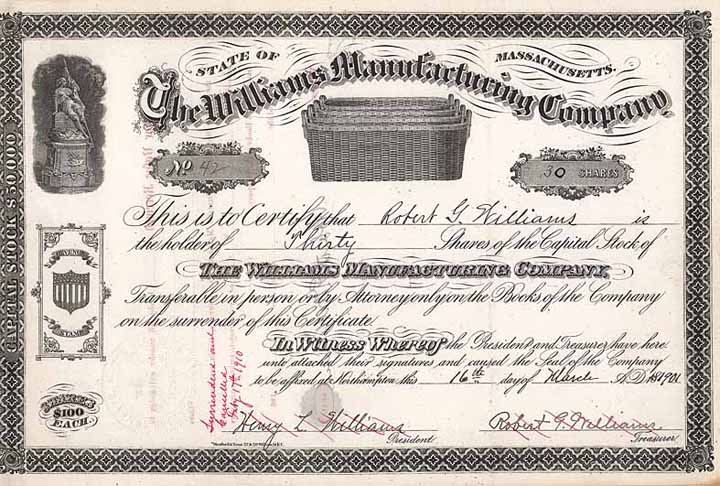 STATE OF MASSACHUSETTS.
The Williams Manufacturing Company,
No 42
30 SHARES
This is to Certify that Robert G. Williams is
the holder of Thirty Shares of the Capital Stock of
THE WILLIAMS MANUFACTURING COMPANY,
Transferable in person or by Attorney only on the Books of the Company
on the surrender of this Certificate.
In Witness Whereof the President and Treasurer have here
unto attached their signatures and caused the Seal of the Company
to be affixed at Northampton this 16th day of March A.D. 1901
Henry L. Williams
President.
Robert G. Williams
Treasurer.
CAPITAL STOCK $50,000
REVENUE
STAMP
SHARES
$100
EACH.
Surrendered and
Cancelled
July 1st 1910